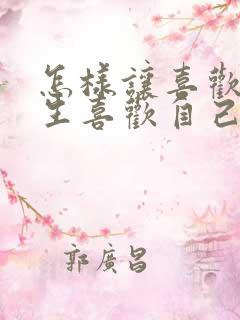 怎樣讓喜歡
生喜歡自己
郭廣昌